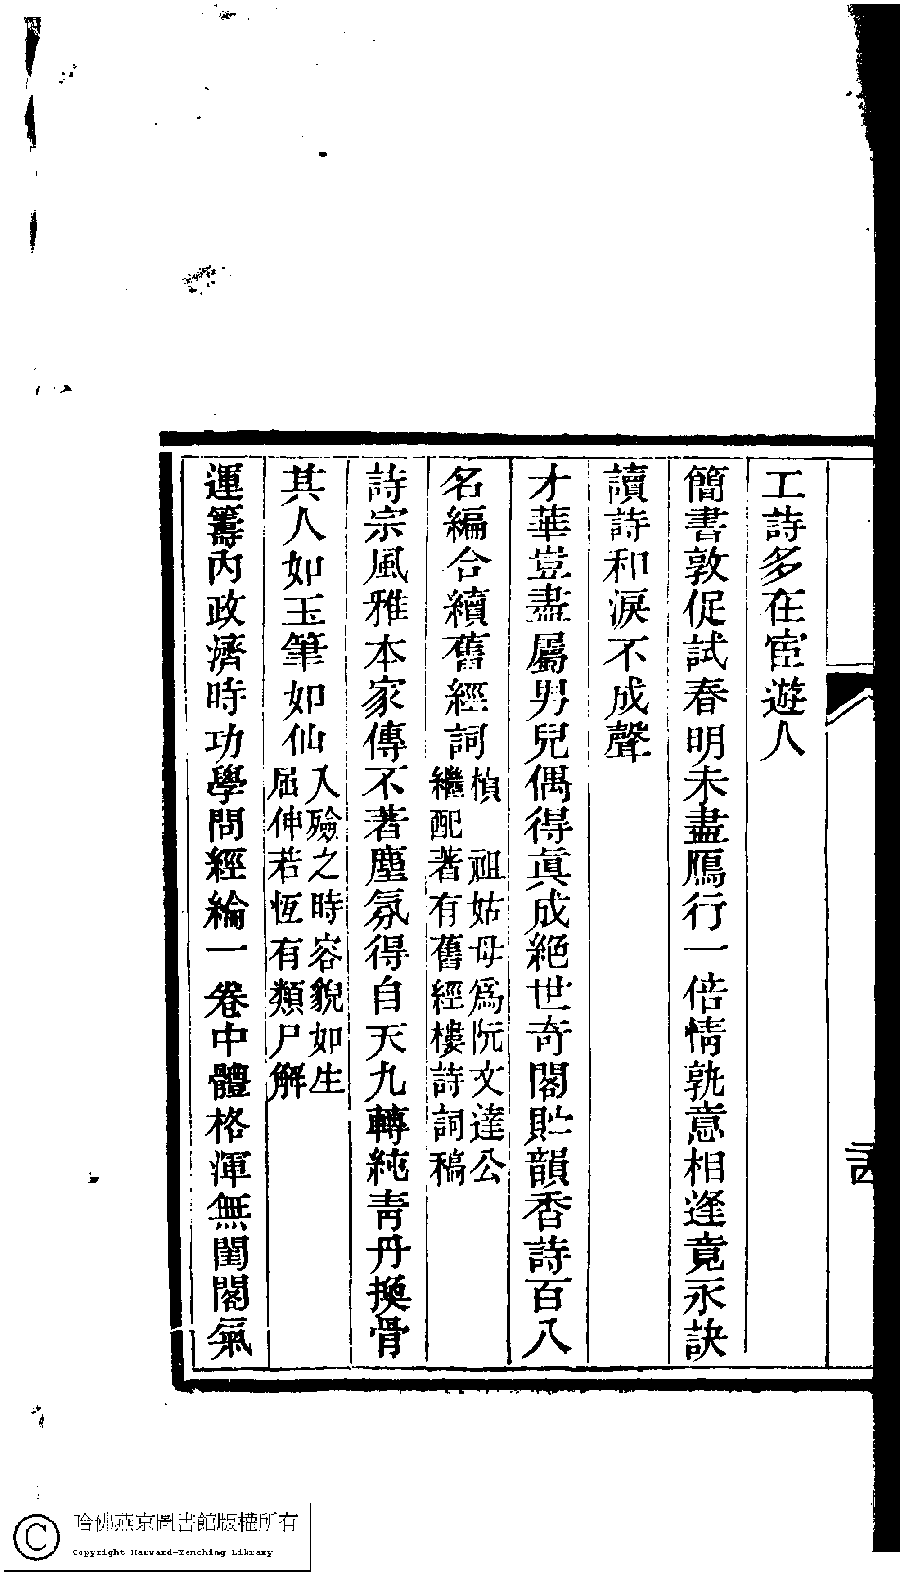 工詩多在宦遊人
簡書敦促試春明未盡鴈行一倍情孰意相逢竟永訣
讀詩和淚不成聲
才華豈盡屬男兒偶得眞成絕世奇閣貯韻香詩百八
名編合續舊經詞
楨　祖姑母爲阮文達公
繼配著有舊經樓詩詞稿
詩宗風雅本家傳不著塵氛得自天九轉純靑丹換骨
其人如玉筆如仙
入殮之時容貌如生
屈伸若恆有類尸解
運籌內政濟時功學問經綸一卷中體格渾無閨閣氣
哈佛燕京圖書館版權所有
Copyright Harvard-Yenching Library